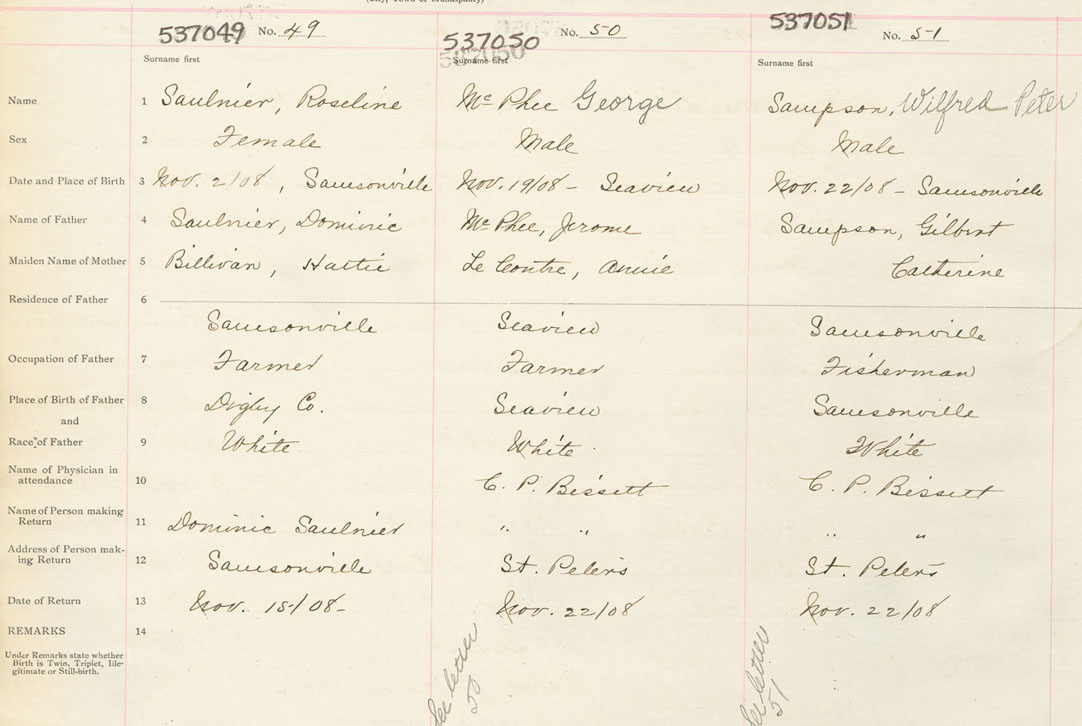 (City, Town or Municipality)
537049 No. 49 537050 No. 50 537051 No. 51
Surname first Surname first Surname first
Name 1 Saulnier, Roseline Mc Phee George Sampson, Wilfred Peter
Sex 2 Female Male Male
Date and Place of Birth 3 Nov. 2/08, Samsonville Nov. 19/08 - Seaview Nov. 22/08 - Samsonville
Name of Father 4 Saulnier, Dominic Mc Phee, Jerome Sampson, Gilbert
Maiden Name of Mother 5 Billivan, Hattie Le Contre, Annie Catherine
Residence of Father 6
Samsonville Seaview Samsonville
Occupation of Father 7 Farmer Farmer Fisherman
Place of Birth of Father 8 Digby Co. Seaview Samsonville
and
Race of Father 9 White White White
Name of Physician in
attendance 10 C. P. Bissett C. P. Bissett
Name of Person making
Return 11 Dominic Saulnier " " " "
Address of Person mak-
ing Return 12 Samsonville St. Peters St. Peters
Date of Return 13 Nov. 15/08 - Nov. 22/08 Nov. 22/08
REMARKS 14
Under Remarks state whether
Birth is Twin, Triplet, Ille-
gitimate or Still-birth.
See letter
50
See letter
51